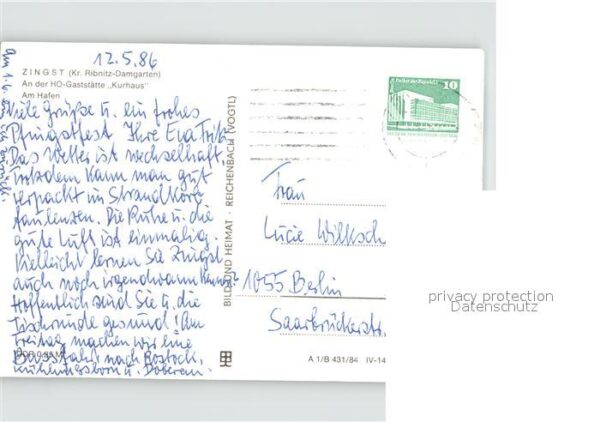 12.5.86
ZINGST (Kr. Ribnitz-Damgarten)
An der HO-Gaststätte „Kurhaus"
Am Hafen
Viele Grüße u. ein frohes
Pfingstfest Ihre Eva
Das Wetter ist wechselhaft,
trotzdem kann man gut
verpackt im Strandkorb
faulenzen. Die Ruhe u. die
gute Luft ist einmalig.
Vielleicht lernen Sie Zingst
auch noch irgendwann kennen?
Hoffentlich sind Sie u. die
Tischrunde gesund! Am
Freitag machen wir eine
Busfahrt nach Rostock,
Kühlungsborn u. Doberan.
am 1.6.
BILD UND HEIMAT · REICHENBACH (VOGTL)
Palast der Republik
10
Frau
Lucie Wilksch
1055 Berlin
Saarbrückerstr.
A 1/B 431/84 IV-14
privacy protection
Datenschutz